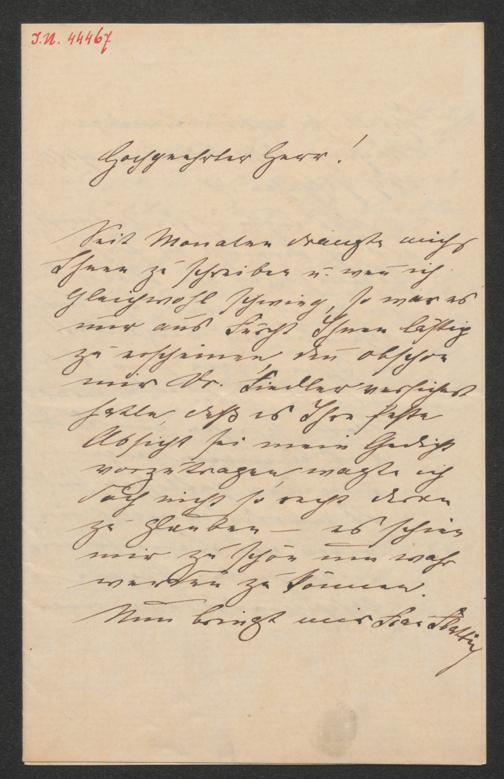 I.N. 44467
Hochgeehrter Herr!
Seit Monaten drängte mich's
Ihnen zu schreiben u. wen̄ ich
gleichwohl schwieg, so war es
nur aus Furcht Ihnen lästig
zu erscheinen, den̄ obschon
mir Dr. Fiedler versichert
hatte, daß es Ihre feste
Absicht sei mein Gedicht
vorzutragen, wagte ich
doch nicht so recht daran
zu glauben — es schien
mir zu schön um wahr
werden zu können.
Nun bringt mir Frau